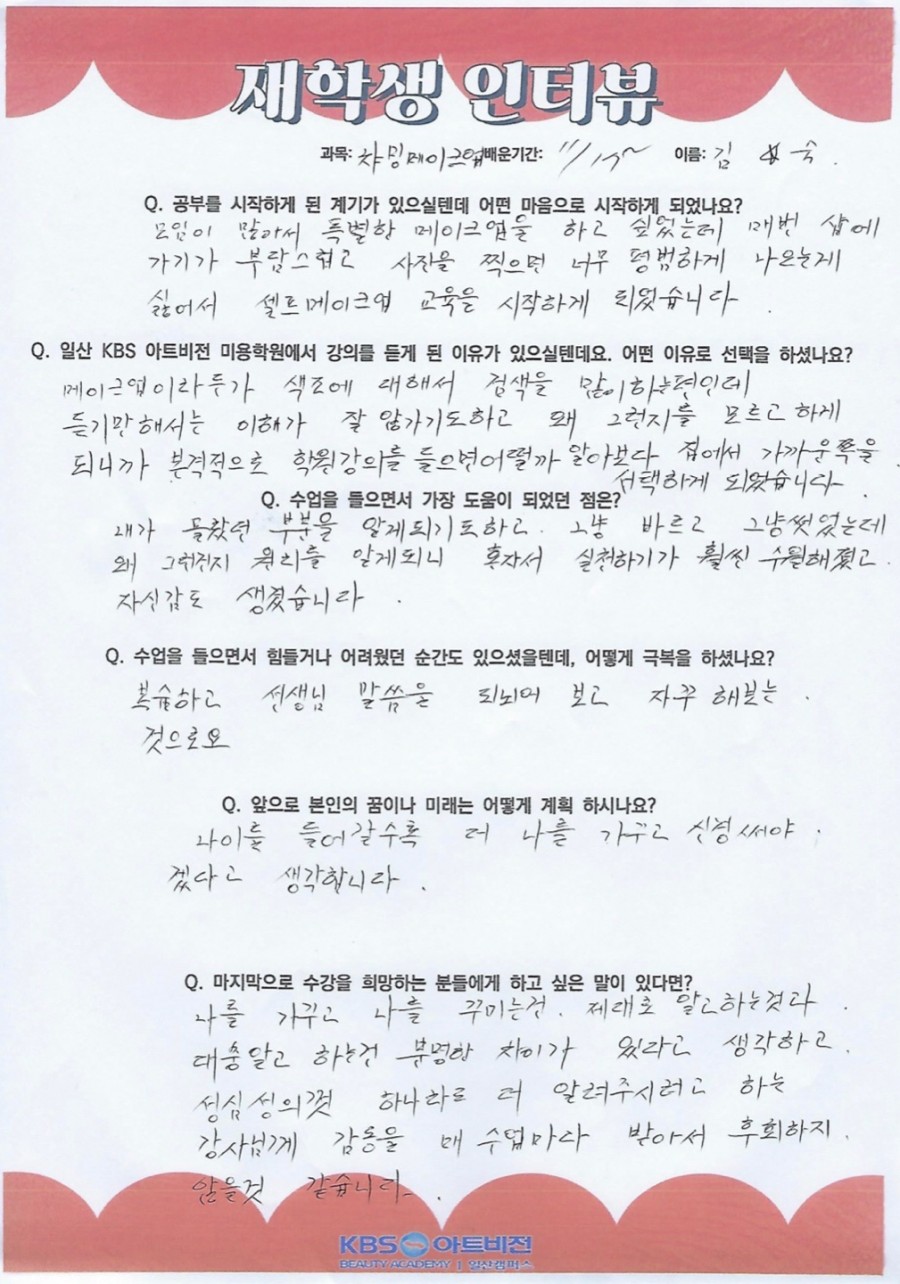 재학생 인터뷰
과목: 차밍메이크업 배운기간: 11/15~ 이름: 김 숙
Q. 공부를 시작하게 된 계기가 있으실텐데 어떤 마음으로 시작하게 되었나요?
모임이 많아서 특별한 메이크업을 하고 싶었는데 매번 샵에
가기가 부담스럽고 사진을 찍으면 너무 평범하게 나오는게
싫어서 셀프메이크업 교육을 시작하게 되었습니다.
Q. 일산 KBS 아트비전 미용학원에서 강의를 듣게 된 이유가 있으실텐데요. 어떤 이유로 선택을 하셨나요?
메이크업이라든가 색조에 대해서 검색을 많이하는편인데
듣기만해서는 이해가 잘 안가기도하고 왜 그런지를 모르고 하게
되니까 본격적으로 학원강의를 들으면어떨까 알아보다 집에서 가까운쪽을
선택하게 되었습니다.
Q. 수업을 들으면서 가장 도움이 되었던 점은?
내가 몰랐던 부분을 알게되기도하고. 그냥 바르고 그냥썻었는데
왜 그런건지 원리를 알게되니 혼자서 실천하기가 훨씬 수월해졌고.
자신감도 생겼습니다.
Q. 수업을 들으면서 힘들거나 어려웠던 순간도 있으셨을텐데, 어떻게 극복을 하셨나요?
복습하고 선생님 말씀을 되뇌며 보고 자꾸 해보는
것으로요
Q. 앞으로 본인의 꿈이나 미래는 어떻게 계획 하시나요?
나이를 들어갈수록 더 나를 가꾸고 신경써야.
겠다고 생각합니다.
Q. 마지막으로 수강을 희망하는 분들에게 하고 싶은 말이 있다면?
나를 가꾸고 나를 꾸미는건. 제대로 알고하는것과.
대충알고 하는건 분명한 차이가 있다고 생각하고.
성심성의껏 하나라도 더 알려주시려고 하는
강사님께 감동을 매 수업마다 받아서 후회하지.
않을것 같습니다.
KBS 아트비전
BEAUTY ACADEMY | 일산캠퍼스